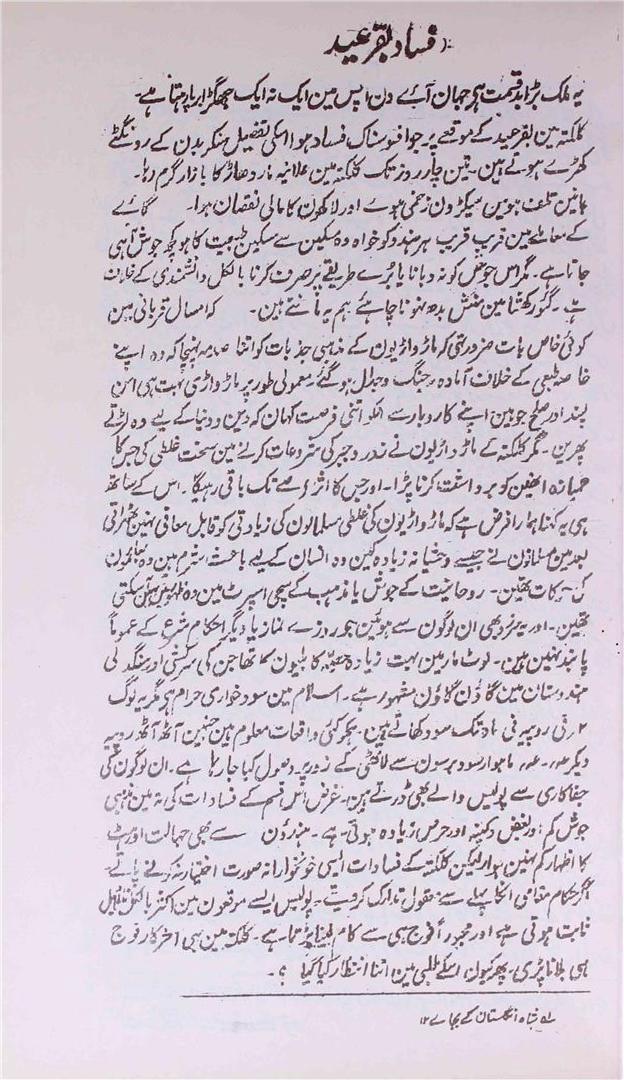 فساد بقر عید
یہ ملک بڑا بد قسمت ہی جہان آئے دن اپس مین ایک نہ ایک جھگڑا برپا رہتا ہے۔
کلکتہ مین بقر عید کے موقعے پر جو افسوسناک فساد ہوا اسکی تفصیل سنکر بدن کے رونگٹے
کھڑے ہوتے ہین۔ تین چار روز تک کلکتہ مین علانیہ مار دھاڑ کا بازار گرم رہا۔
جانین تلف ہوین سیکڑون زخمی ہوے اور لاکھون کا مالی نقصان ہوا۔ گائے
کے معاملے مین قریب قریب ہر ہندو کو خواہ وہ مسکین سے مسکین طبیعت کا ہو کچھ جوش آہی
جاتا ہے۔ مگر اس جوش کو نہ دبانا یا بُرے طریقے پر صرف کرنا بالکل دانشمندی کے خلاف
ہے۔ گؤ رکھشا مین منش بدھ نہونا چاہئے ہم یہ مانتے ہین۔ کہ امسال قربانی مین
کوئی خاص بات ضرور تھی کہ ماڑواڑیون کے مذہبی جذبات کو اتنا صدمہ پہنچا کہ وہ اپنے
خاصۂ طبعی کے خلاف آمادہ جنگ و جدل ہو گئے معمولی طور پر ماڑواڑی بہت ہی امن
پسند اور صلح جو ہین اپنے کاروبار سے انکو اتنی فرصت کہان کہ دین و دنیا کے لیے وہ لڑتے
پھرین۔ مگر کلکتہ کے ماڑواڑیون نے زد و جبر کی شروعات کرنے مین سخت غلطی کی جسکا
خمیازہ انھین کو برداشت کرنا پڑا۔ اور جس کا اثر عرصے تک باقی رہیگا۔ اس کے ساتھ
ہی یہ کہنا ہمارا فرض ہے کہ ماڑواڑیون کی غلطی مسلمانون کی زیادتی کو قابل معافی نہین ٹھہراتی
بعد مین مسلمانون نے جیسے وحشیانہ زیادہ کین وہ انسان کے لیے باعث شرم ہین وہ
کی حرکات تھین۔ روحانیت کے جوش یا مذہب کے سچی اسپرٹ مین وہ ظہور نہین ہو سکتی
تھین۔ اور یہ سرزد بھی ان لوگون سے ہوئین جو روزے نماز یا دیگر احکام شرع کے عموماً
پابند نہین ہین۔ لوٹ مار مین بہت زیادہ حصہ کابلیون کا تھا جن کی سرکشی اور سنگدلی
ہندوستان مین گاؤن گاؤن مشہور ہے۔ اسلام مین سود خواری حرام ہی مگر یہ لوگ
۲ر فی روپیہ فی ماہ تک سود کھاتے ہین۔ ہمکو کئی واقعات معلوم ہین جنہین آٹھ آٹھ روپیہ
دیکر ماہوار سود برسون سے لاٹھی کے زور پر وصول کیا جا رہا ہے۔ ان لوگون کی
جفاکاری سے پولیس والے بھی ڈرتے ہین۔ غرض اس قسم کے فسادات کی تہ مین مذہبی
جوش کم اور بغض و کینہ اور حرص زیادہ ہوتی ہے۔ ہندؤن سے بھی جہالت اور ہٹ
کا اظہار کم نہین ہوا۔ لیکن کلکتہ کے فسادات ایسی خونخوارانہ صورت اختیار نہ کرنے پاتے
اگر حکام مقامی انکا پہلے سے معقول تدارک کر دیتے۔ پولیس ایسے موقعون مین اکثر بالکل
ثابت ہوتی ہے اور مجبوراً فوج ہی سے کام لینا پڑتا ہے۔ کلکتہ مین بھی آخر کار فوج
ہی بلانا پڑی۔ پھر کیون اسکے طلبی مین اتنا انتظار کیا گیا ؟۔
شاہ انگلستان کے بجائے ۱۲